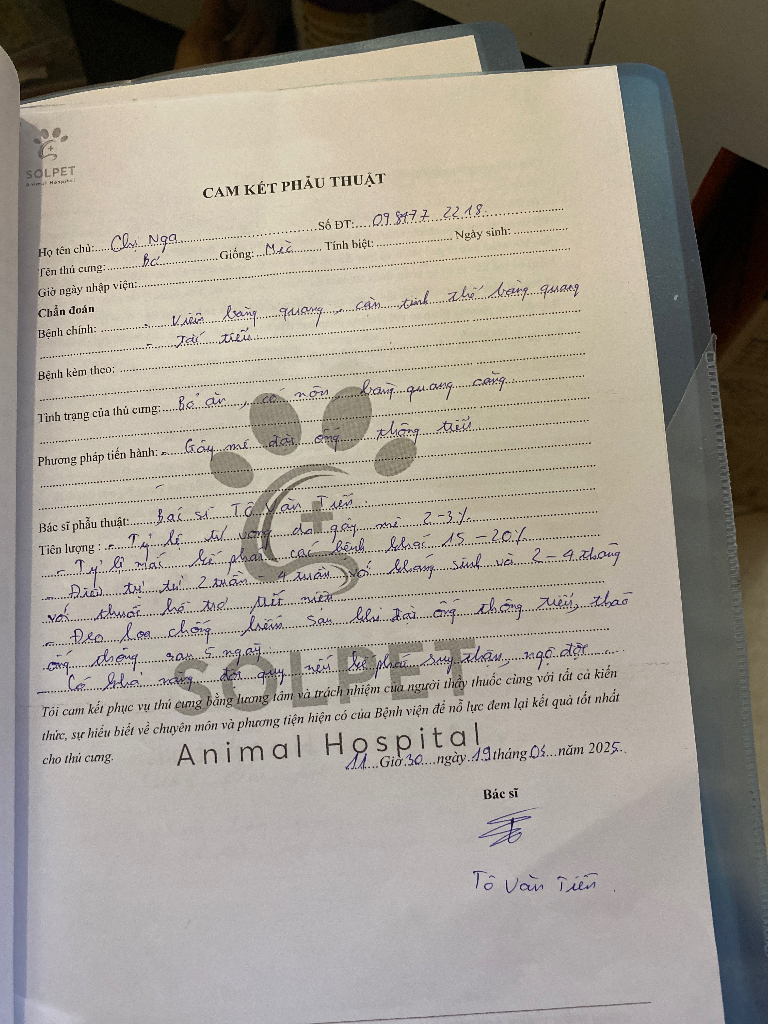 SOLPET
Animal Hospital
CAM KẾT PHẪU THUẬT
Họ tên chủ: Chị Nga Số ĐT: 098477 2218
Tên thú cưng: Bơ Giống: Mèo Tính biệt: Ngày sinh:
Giờ ngày nhập viện:
Chẩn đoán
Bệnh chính: - Viêm bàng quang, cặn tinh thể bàng quang
- Tắc tiểu
Bệnh kèm theo:
Tình trạng của thú cưng: Bỏ ăn, có nôn, bàng quang căng
Phương pháp tiến hành: - Gây mê đặt ống thông tiểu
-
Bác sĩ phẫu thuật: Bác sĩ Tô Văn Tiến
Tiên lượng: - Tỷ lệ tử vong do gây mê 2-3%
- Tỷ lệ mắc kế phát các bệnh khác 15-20%
- Điều trị từ 2 tuần - 4 tuần với kháng sinh và 2-4 tháng
với thuốc hỗ trợ tiết niệu
- Đeo loa chống liếm sau khi đặt ống thông tiểu, tháo
ống thông sau 5 ngày
- Có khả năng đột quỵ nếu kế phát suy thận, ngộ độc
SOLPET
Tôi cam kết phục vụ thú cưng bằng lương tâm và trách nhiệm của người thầy thuốc cùng với tất cả kiến
thức, sự hiểu biết về chuyên môn và phương tiện hiện có của Bệnh viện để nỗ lực đem lại kết quả tốt nhất
cho thú cưng.
Animal Hospital
11 Giờ 30 ngày 19 tháng 05 năm 2025
Bác sĩ
Tô Văn Tiến